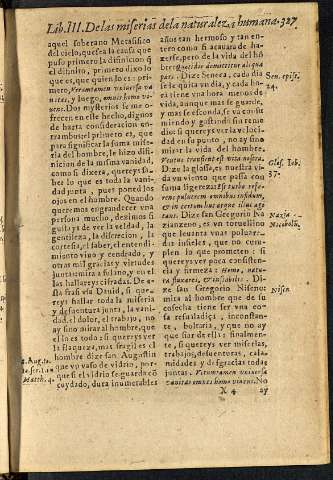 Lib. III. De las miserias de la naturalez. humana. 327
aquel soberano Metafisico
del cielo, que sea la causa que
puso primero la difinicion q̃
el difinito, primero dixo lo
que es, que quien lo es: pri-
mero, Verumtamen vniuersa va
nitas, y luego, omnis homo vi-
uens. Dos mysterios se me o-
frecen en este hecho, dignos
de harta consideracion en-
trambos: el primero es, que
para significar la suma mise-
ria del hombre, le hizo difi-
nicion de la misma vanidad,
como si dixera, quereys sa-
ber lo que es toda la vani-
dad junta, pues poned los
ojos en el hombre. Quando
queremos engrandecer vna
persona mucho, dezimos si
la gen-
tileza, la discrecion, la
cortesia, el saber, el entendi-
miento viuo y cendrado, y
otras mil gracias y virtudes
junta: mirà a fulano, y en el
las hallareys cifradas. De a-
questa frasi vsa Dauid, si que-
reys hallar toda la miseria
y desuentura junta, la vani-
dad, el dolor, el trabajo, no
ay sino mirar al hombre, que
el lo es todo: si quereys ver
la flaqueza, mas fragil es el
hombre dize san Augustin
que vn vaso de vidrio, por-
que si el vidrio se guarda cõ
cuydado, dura inumerables
S. Aug. to.
Matth. 4.
años tan hermoso y tan en-
tero como si acauara de ha-
zerse, pero de la vida del hõ
bre
pars. Dize Seneca, cada dia
se le quita vn dia, y cada ho
ra tiene vna hora menos de
vida, aunque mas se guarde,
y mas se esconda, se va consu
miendo y gastando: si a este
dio si quereys ver la veloci-
dad en su punto, no ay sino
mirar la vida del hombre.
Ventus transiens est vita nostra.
Dize la glossa, es nuestra vi-
da vn viento que passa con
suma ligereza:
tans. Dize san Gregorio Na
zianzeno, es vn toruellino
que leuanta vnas poluare-
das insieles, que no cum-
plen lo que prometen: si
quereys ver poca consisten-
cia y firmeza: Homo, natu-
ra fluxaret, & instabilis. Di-
ze san Gregorio Niseno:
mira al hombre que de su
cosecha tiene ser vna co-
sa resualadiça, inconstan-
te, boltaria, y que no ay
que fiar de ella: finalmen-
te, si quereys ver miserias,
trabajos, desuenturas, cala-
midades y desgracias todas
juntas. Verumtamen vniuersa
vanitas omnis homo viuens. No
Sen. epist.
24.
Glos. Iob.
37.
Nisen.
X 4